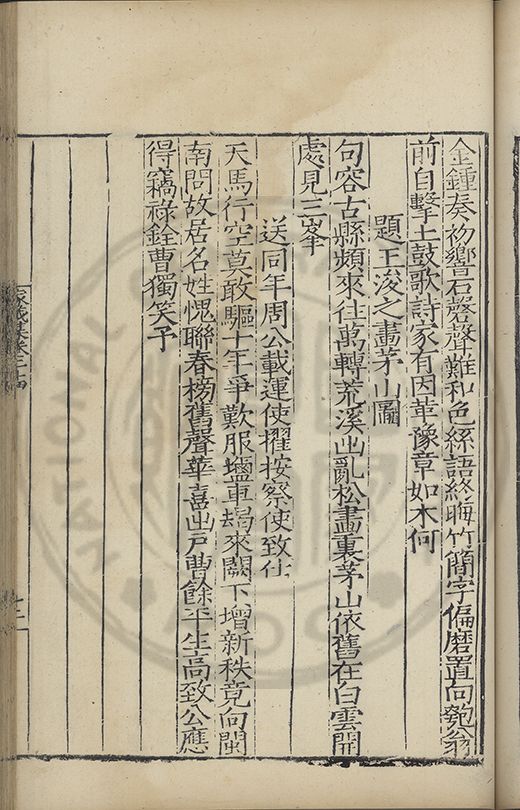 金鍾奏初響石磬聲難和色絲語終晦竹簡字偏磨置向匏翁
前自擊土鼓歌詩家有因革豫章如木何
題王浚之畫茅山圖
句容古縣頻來往萬轉荒溪出亂松畫裏茅山依舊在白雲開
處見三峯
送同年周公載運使擢按察使致仕
天馬行空莫敢驅十年爭歎服鹽車朅來闕下增新秩竟向閩
南問故居名姓愧聯春榜舊聲華喜出戶曹餘平生高致公應
得竊祿銓曹獨笑予
家藏集卷二十四